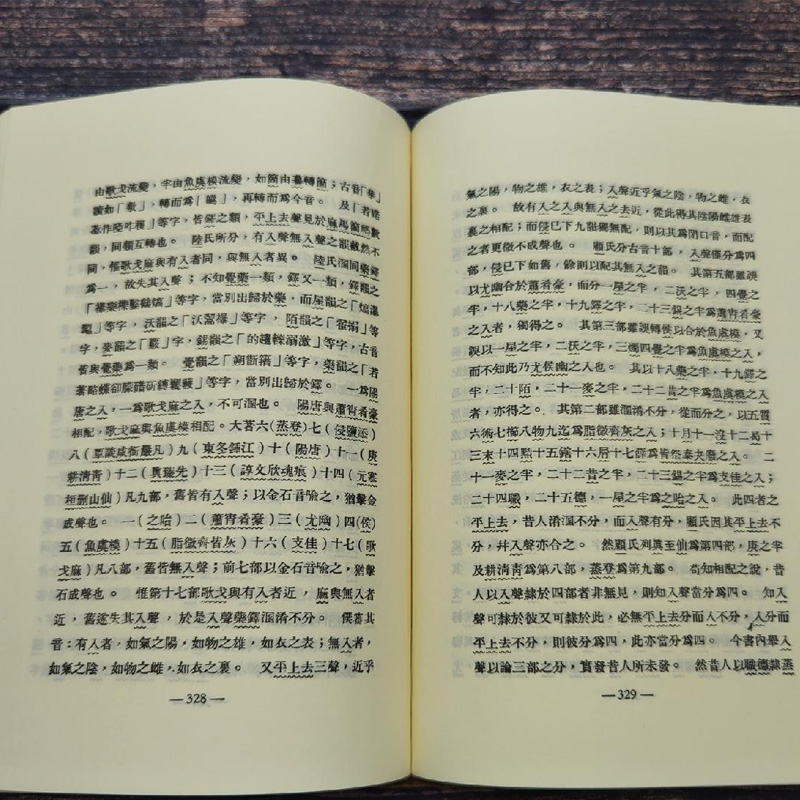 由歌戈流變,字由魚虞模流變,如簡由轉;古音「華」
讀如「敷」,轉而爲「」,再轉而爲今音。 及「者
等字,皆之類,平上去聲見於麻馬禡
韻,同類互轉也。 陸氏所分,有入聲無入聲之韻截然不
同,惟歌戈麻與有入者同,與無入者異。 陸氏溷同藥鐸
爲一,故失其入聲;不知覺藥一類,鐸又一類,
」等字,當別出歸於藥,而屋韻之「
」等字,沃韻之「沃」等字,陌韻之「」等
字,麥韻之「」字,錫韻之「的激」等字,古音
皆與覺藥爲一類。 覺韻之「朔」等字,藥韻之「
著略卻」等字,當別出歸於鐸。 一爲陽
唐之入,一爲歌戈麻之入,不可溷也。 陽唐與蕭宵肴豪
相配,歌戈麻與魚虞模相配。大著六(蒸登)七(侵鹽添)
八(覃談咸銜嚴凡)九(東冬鍾江)十(陽唐)十一(庚
耕清青)十二(眞臻先)十三(諄文欣魂痕)十四(元寒
桓刪山仙)凡九部,舊皆有入聲;以金石音喻之,猶擊金
成聲也。 一(之咍)二(蕭宵肴豪)三(尤幽)四(侯)
五(魚虞模)十五(脂微齊皆灰)十六(支佳)十七(歌
戈麻)凡八部,舊皆無入聲;前七部以金石音喻之,猶擊
石成聲也。 惟第十七部歌戈與有入者近,麻與無入者
近,舊遂失其入聲,於是入聲藥鐸溷淆不分。 僕審其
音:有入者,如氣之陽,如物之雄,如衣之表;無入者,
如氣之陰,如物之雌,如衣之裏。 又平上去三聲,近乎
— 328 —
氣之陽,物之雄,衣之表;入聲近乎氣之陰,物之雌,衣
之裏。 故有入之入與無入之去近,從此得其陰陽雌雄表
裏之相配;而侵已下九韻獨無配,則以其爲閉口音,而配
之者更微不成聲也。 顧氏分古音十部,入聲僅分爲四
部,侵已下如舊,餘則以配其無入之韻。 其第五部雖誤
以尤幽合於蕭宵肴豪,而分一屋之半,二沃之半,四覺之
半,十八藥之半,十九鐸之半,二十三錫之半爲蕭宵肴豪
之入者,獨得之。 其第三部雖誤轉侯以合於魚虞模,又
誤以一屋之半,二沃之半,三燭四覺之半爲魚虞模之入,
而不知此乃尤侯幽之入也。 其以十八藥之半,十九鐸之
半,二十陌,二十一麥之半,二十二昔之半爲魚虞模之入
者,亦得之。 其第二部雖溷淆不分,從而分之,以五質
六術七櫛八物九迄爲脂微齊灰之入;十月十一沒十二曷十
三末十四黠十五鎋十六屑十七薛爲皆祭泰夬廢之入。 二
十一麥之半,二十二昔之半,二十三錫之半爲支佳之入;
二十四職,二十五德,一屋之半爲之咍之入。 此四者之
平上去,昔人淆溷不分,而入聲有分,顧氏因其平上去不
分,幷入聲亦合之。 然顧氏列眞至仙爲第四部,庚之半
及耕清青爲第八部,蒸登爲第九部。 苟知相配之說,昔
人以入聲隸於四部者非無見,則知入聲當分爲四。 知入
聲可隸於彼又可隸於此,必無平上去分而入不分,入分而
平上去不分,則彼分爲四,此亦當分爲四。 今書內舉入
聲以論三部之分,實發昔人所未發。 然昔人以職德隸蒸
— 329 —